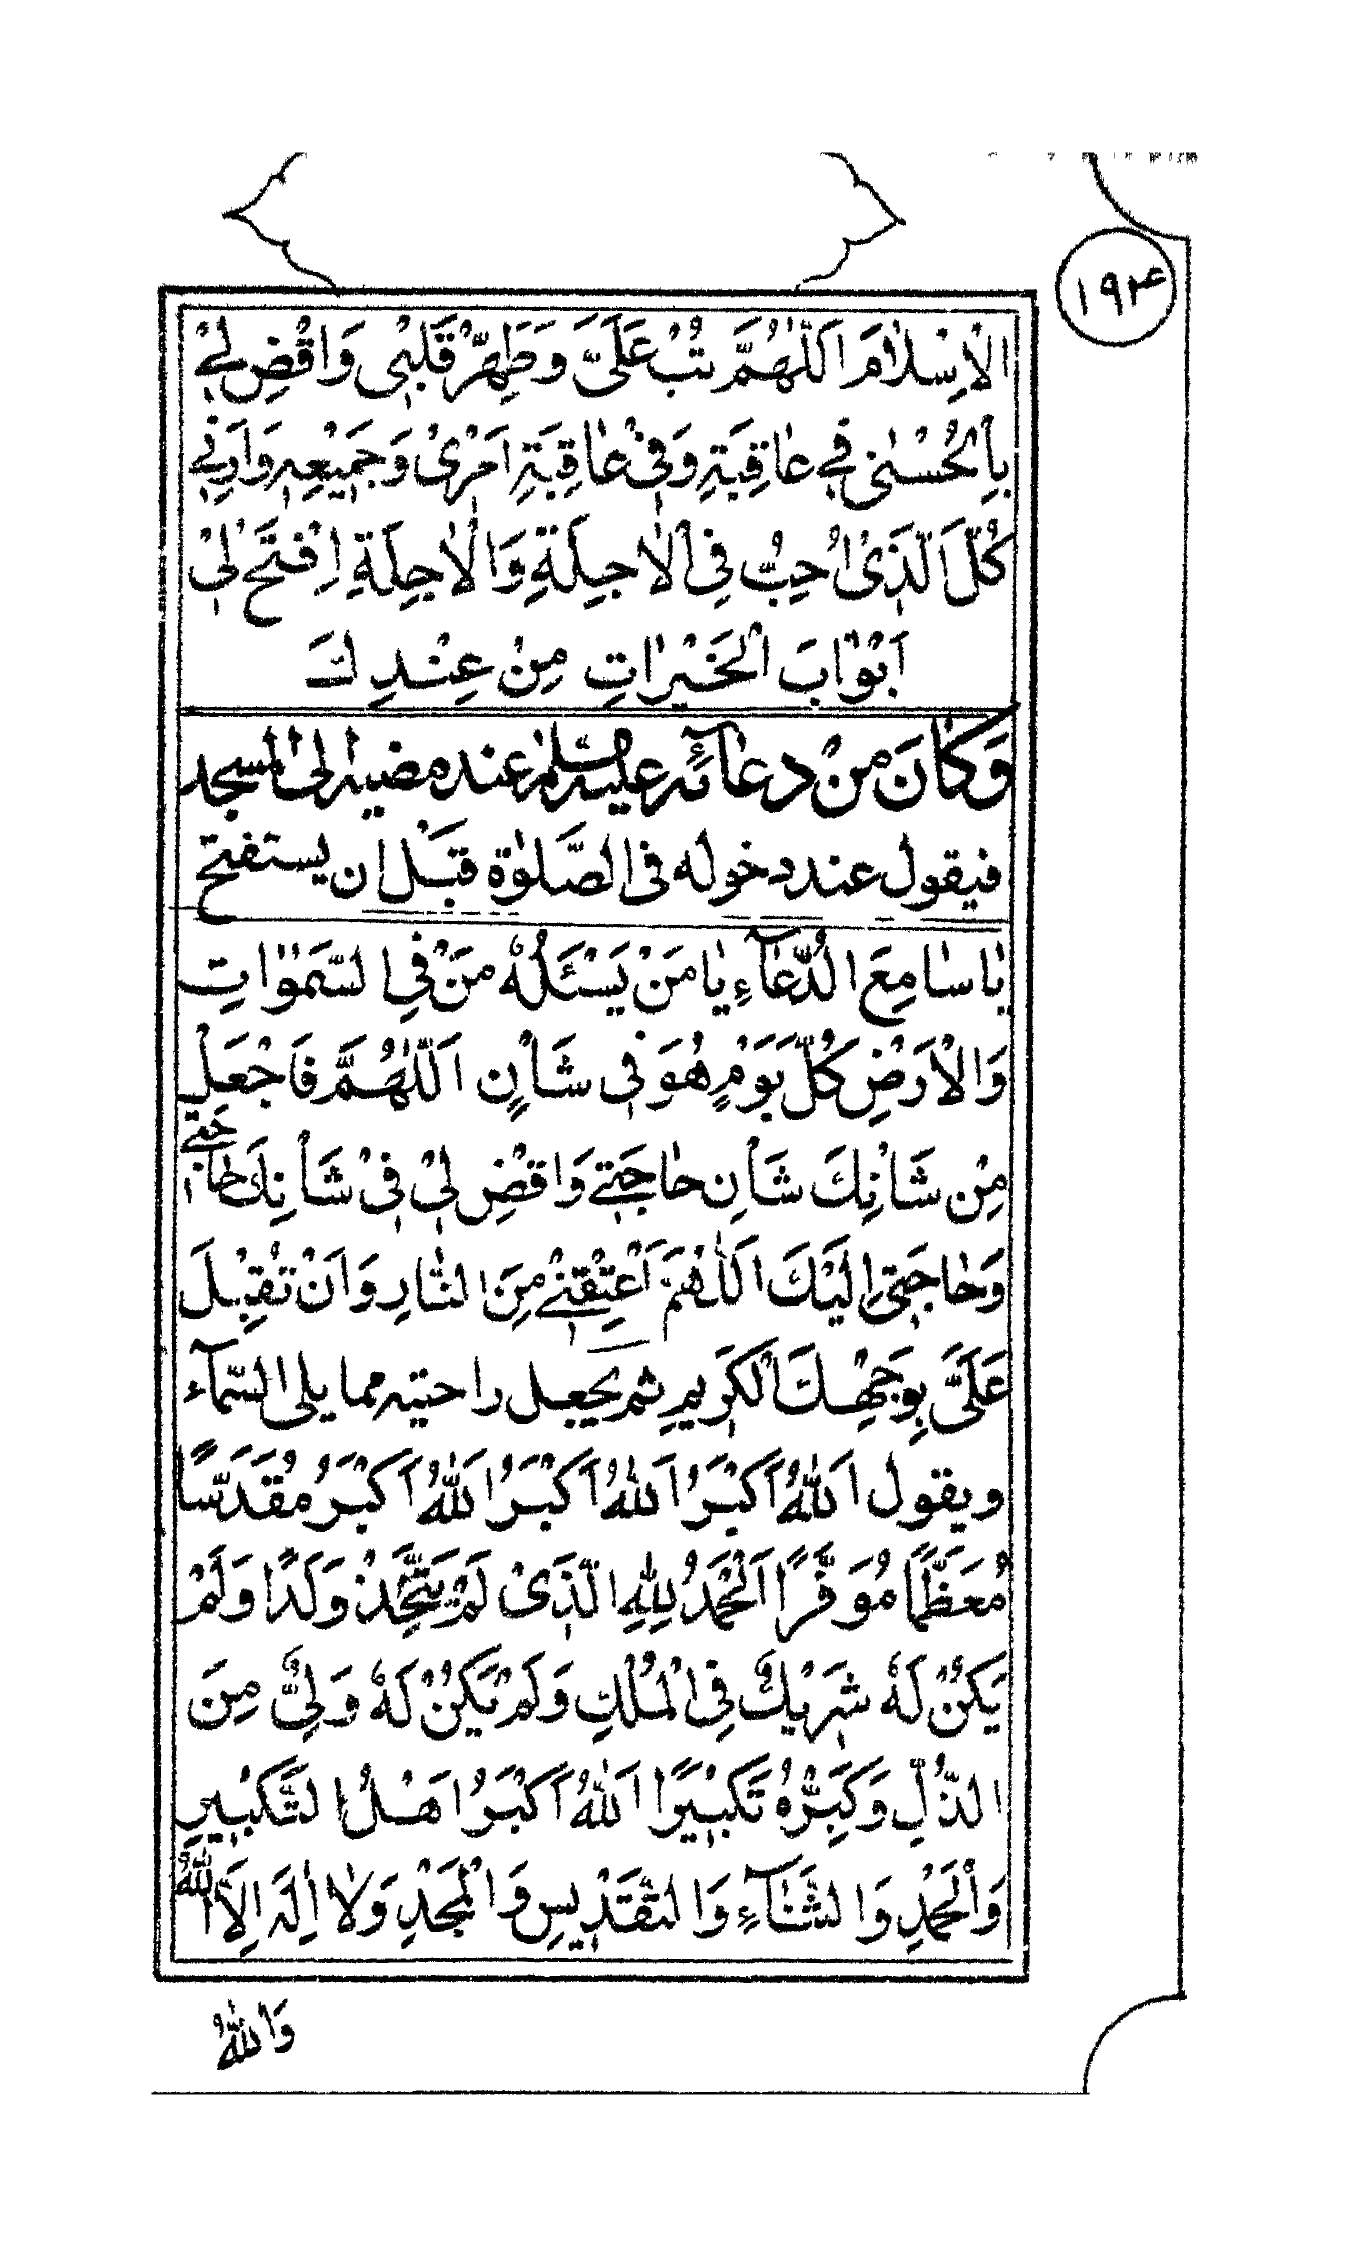 ١٩۴
الْاِسْلٰامَ اَللّٰهُمَّ تُبْ عَلَىَّ وَ طَهِّرْ قَلْبٖى وَ اقْضِ لٖى
بِالْحُسْنٰى فٖى عٰاقِبَةِ وَفٖى عٰاقِبَةِ اَمْرٖىْ وَجَمٖيْعِهٖ وَاَرِنٖى
كُلَّ الَّذٖىْ اُحِبُّ فِى الْاٰجِلَةِ وَالْاٰجِلَةِ اِفْتَحْ لٖىْ
اَبْوٰابَ الْخَيْرٰاتِ مِنْ عِنْدِكَ
وَكٰانَ مِنْ دعٰائِه عليه السلام عند مضيه الى المسجد
فيقول عند دخوله فى الصّلوٰة قبْل ان يستفتح
يٰا سٰامِعَ الدُّعٰآءِ يٰا مَنْ يَسْئَلُهٗ مَنْ فِى السَّمٰوٰاتِ
وَالْاَرْضِ كُلَّ يَوْمٍ هُوَ فٖى شَاْنٍ اَللّٰهُمَّ فَاجْعَلْ
مِنْ شَاْنِكَ شَاْنِ حٰاجَتٖى وَاقْضِ لٖىْ فٖىْ شَاْنِكَ حٰاجَتٖى
وَحٰاجَتٖى اِلَيْكَ اَللّٰهُمَّ اَعْتِقْنٖىْ مِنَ النّٰارِ وَاَنْ تُقْبِلَ
عَلَىَّ بِوَجْهِكَ الْكَرٖيمِ ثم يجعل راحتيه مما يلى السّمآء
و يقول اَللّٰهُ اَكْبَرُ اَللّٰهُ اَكْبَرُ اَللّٰهُ اَكْبَرُ مُقَدَّسًا
مُعَظَّمًا مُوَقَّرًا اَلْحَمْدُ لِلّٰهِ الَّذٖىْ لَمْ يَتَّخِذْ وَلَدًا وَلَمْ
يَكُنْ لَهٗ شَرٖيْكٌ فِى الْمُلْكِ وَلَمْ يَكُنْ لَهٗ وَلِىٌّ مِنَ
الذُّلِّ وَكَبِّرْهُ تَكْبٖيْرًا اَللّٰهُ اَكْبَرُ اَهْلُ التَّكْبٖيْرِ
وَالْحَمْدِ وَالثَّنٰآءِ وَالتَّقْدٖيسِ وَالْمَجْدِ وَلٰا اِلٰهَ اِلَّا اللّٰهُ
وَاللّٰهُ